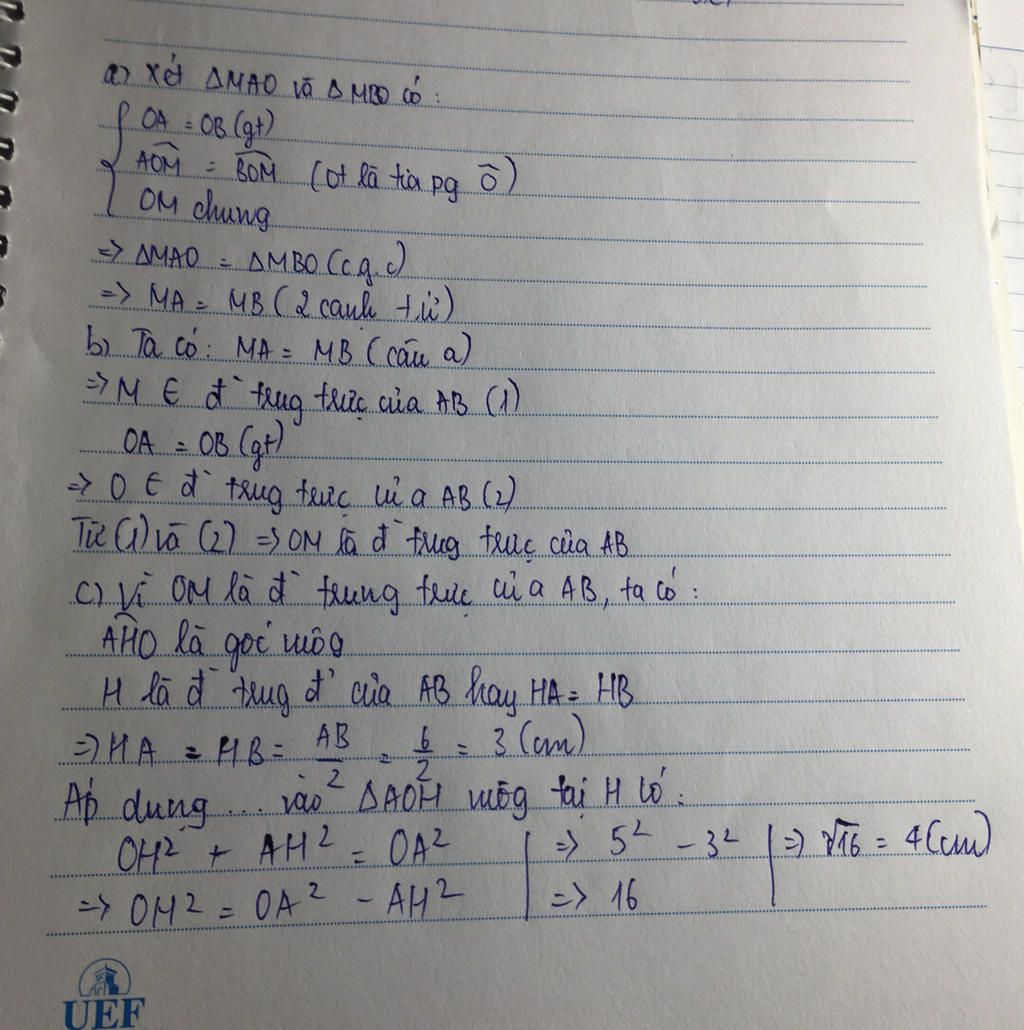 a) Xét ΔMAO và ΔMBO có:
OA = OB (gt)
AOM = BOM (Ot là tia pg Ô)
OM chung
=> ΔMAO = ΔMBO (c.g.c)
=> MA = MB (2 cạnh t.ứ)
b) Ta có: MA = MB (câu a)
=> M ∈ đ` trug trực của AB (1)
OA = OB (gt)
=> O ∈ đ` trug trực của AB (2)
Từ (1) và (2) => OM là đ` trug trực của AB
c) Vì OM là đ` trung trực của AB, ta có:
AHO là góc vuôg
H là đ` trug đ' của AB hay HA = HB
=> HA = HB = AB/2 = 6/2 = 3 (cm)
Áp dụng ... vào ΔAOH vuôg tại H có:
OH² + AH² = OA² | => 5² - 3² | => √16 = 4 (cm)
=> OH² = OA² - AH² | => 16
UEF